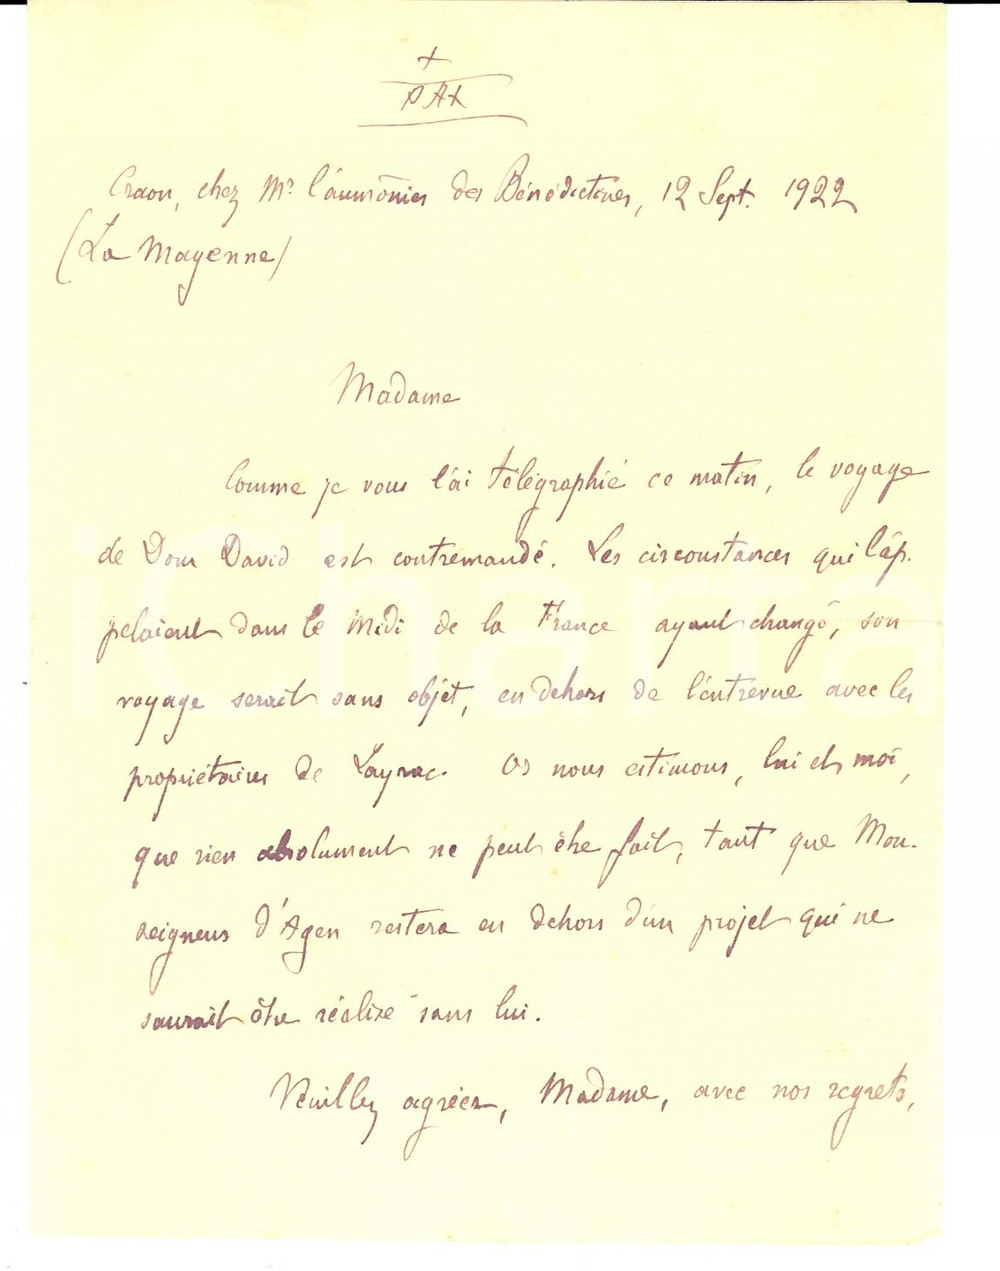 +
PAX
Craon, chez Mr. l'aumônier des Bénédictines, 12 Sept. 1922
(La Mayenne)
Madame
Comme je vous l'ai télégraphié ce matin, le voyage
de Dom David est contremandé. Les circonstances qui l'ap-
pelaient dans le Midi de la France ayant changé, son
voyage serait sans objet, en dehors de l'entrevue avec les
propriétaires de Layrac. Or nous estimons, lui et moi,
que rien absolument ne peut être fait, tant que Mon-
seigneur d'Agen restera en dehors d'un projet qui ne
saurait être réalisé sans lui.
Veuillez agréer, Madame, avec nos regrets,